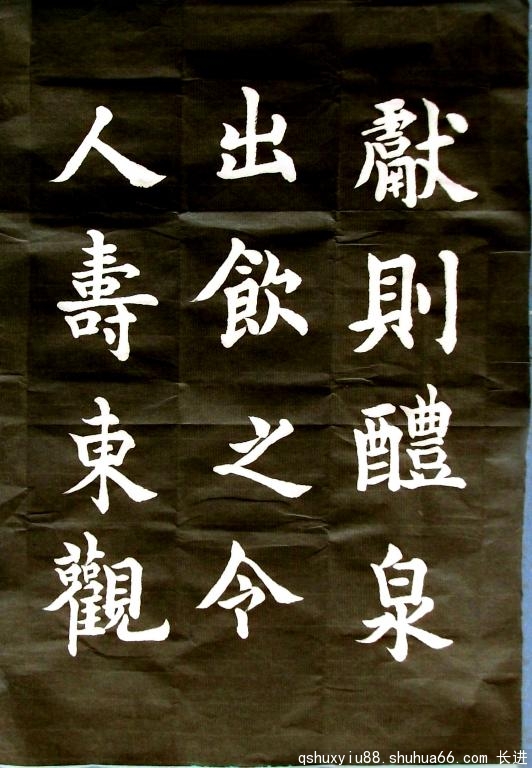 獻則醴泉
出飲之令
人壽東觀
qshuxyiu88.shuhua66.com 长进